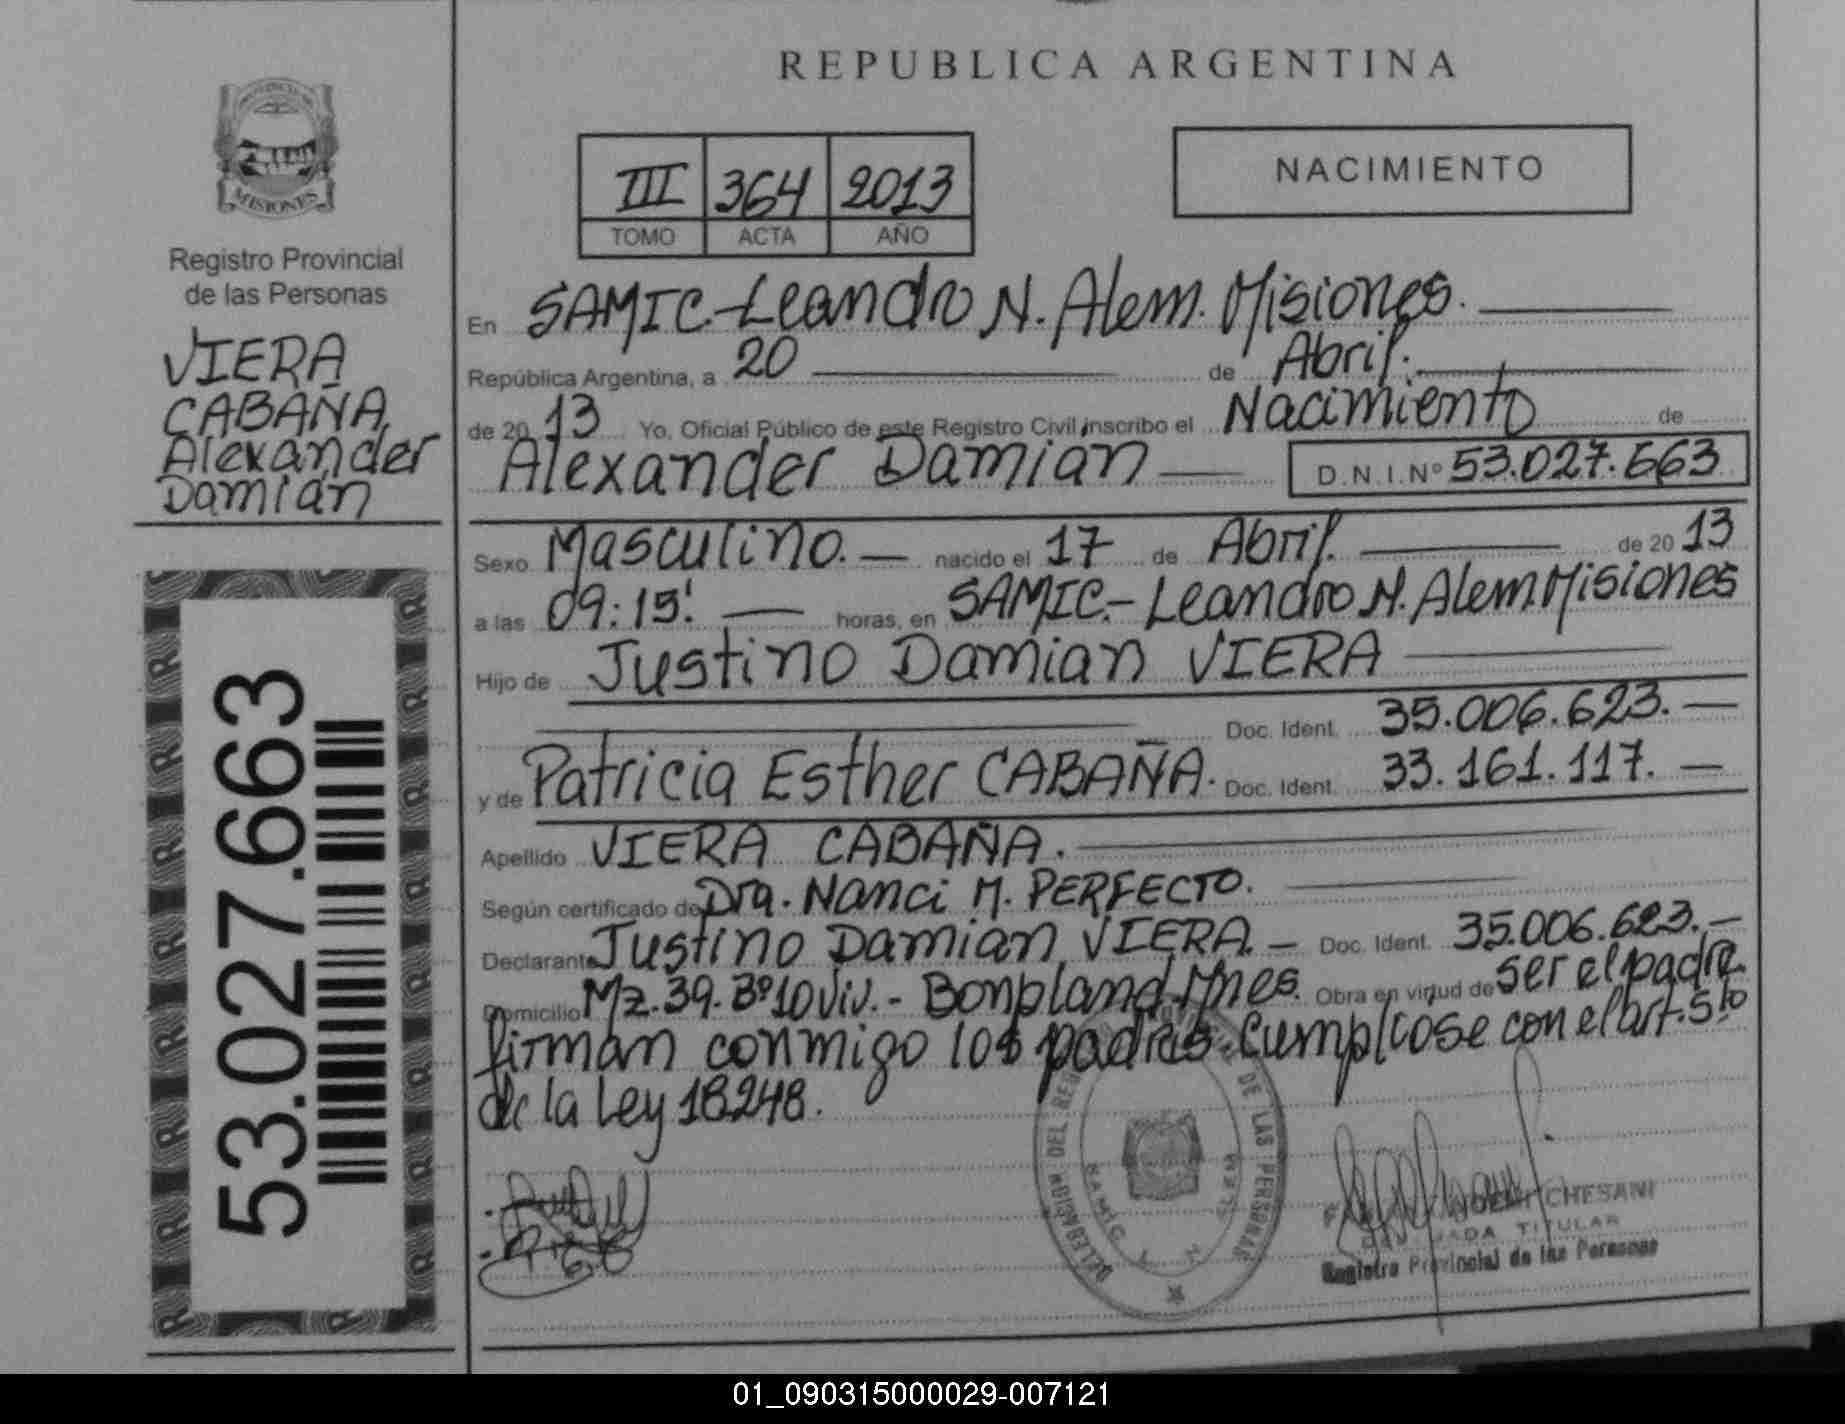 REPUBLICA ARGENTINA
MISIONES
Registro Provincial
de las Personas
VIERA
CABAÑA
Alexander
Damián
53.027.663
III 364 2013
TOMO ACTA AÑO
NACIMIENTO
En SAMIC.-Leandro N. Alem. Misiones.
República Argentina, a 20 de Abril.
de 20 13 Yo, Oficial Público de este Registro Civil inscribo el Nacimiento de
Alexander Damián D.N.I.Nº 53.027.663
Sexo Masculino. nacido el 17 de Abril. de 20 13
a las 09:15'. horas, en SAMIC.- Leandro N. Alem. Misiones
Hijo de Justino Damian VIERA
Doc. Ident. 35.006.623.
y de Patricia Esther CABAÑA. Doc. Ident. 33.161.117.
Apellido VIERA CABAÑA.
Según certificado de Dra. Nanci M. PERFECTO.
Declarante Justino Damian VIERA. Doc. Ident. 35.006.623.
Domicilio Mz.39. Bº10Viv.- Bonpland. Mnes. Obra en virtud de ser el padre
firman conmigo los padres. Cumpliose con el art. 5to
de la Ley 18248.
DELEGACION DEL DE LAS PERSONAS
SAMIC L. N. ALEM
NOEMI CHESANI
TITULAR
Registro Provincial de las Personas
01_090315000029-007121